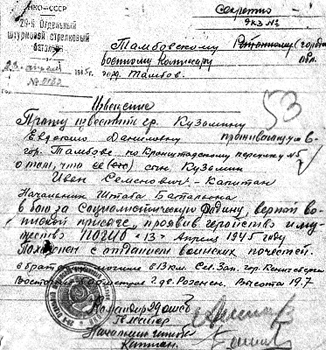 НКО-СССР
29-й Отдельный
штурмовой стрелковый
батальон
23 апреля 1945г.
Секретно
экз №2
Тамбовскому
военному комиссару
гор. Тамбов.
Извещение
53
Прошу известить гр. Кузьмину
Евдокию Даниловну проживающую в
гор. Тамбове по Кронштадтскому переулку №5
о том, что её сын Кузьмин
Иван Семенович - Капитан
Начальник Штаба Батальона
в бою за Социалистическую Родину, верный во-
инской присяге, проявив геройство и му-
жество погиб "13" Апреля 1945 году
Похоронен с отданием воинских почестей.
в братской могиле в 13 км. Сев. Зап. гор. Кенигсберга
Восточная г. дв. Розенен. Высота 19.7
Командир 29 ошсб
Начальник штаба
капитан